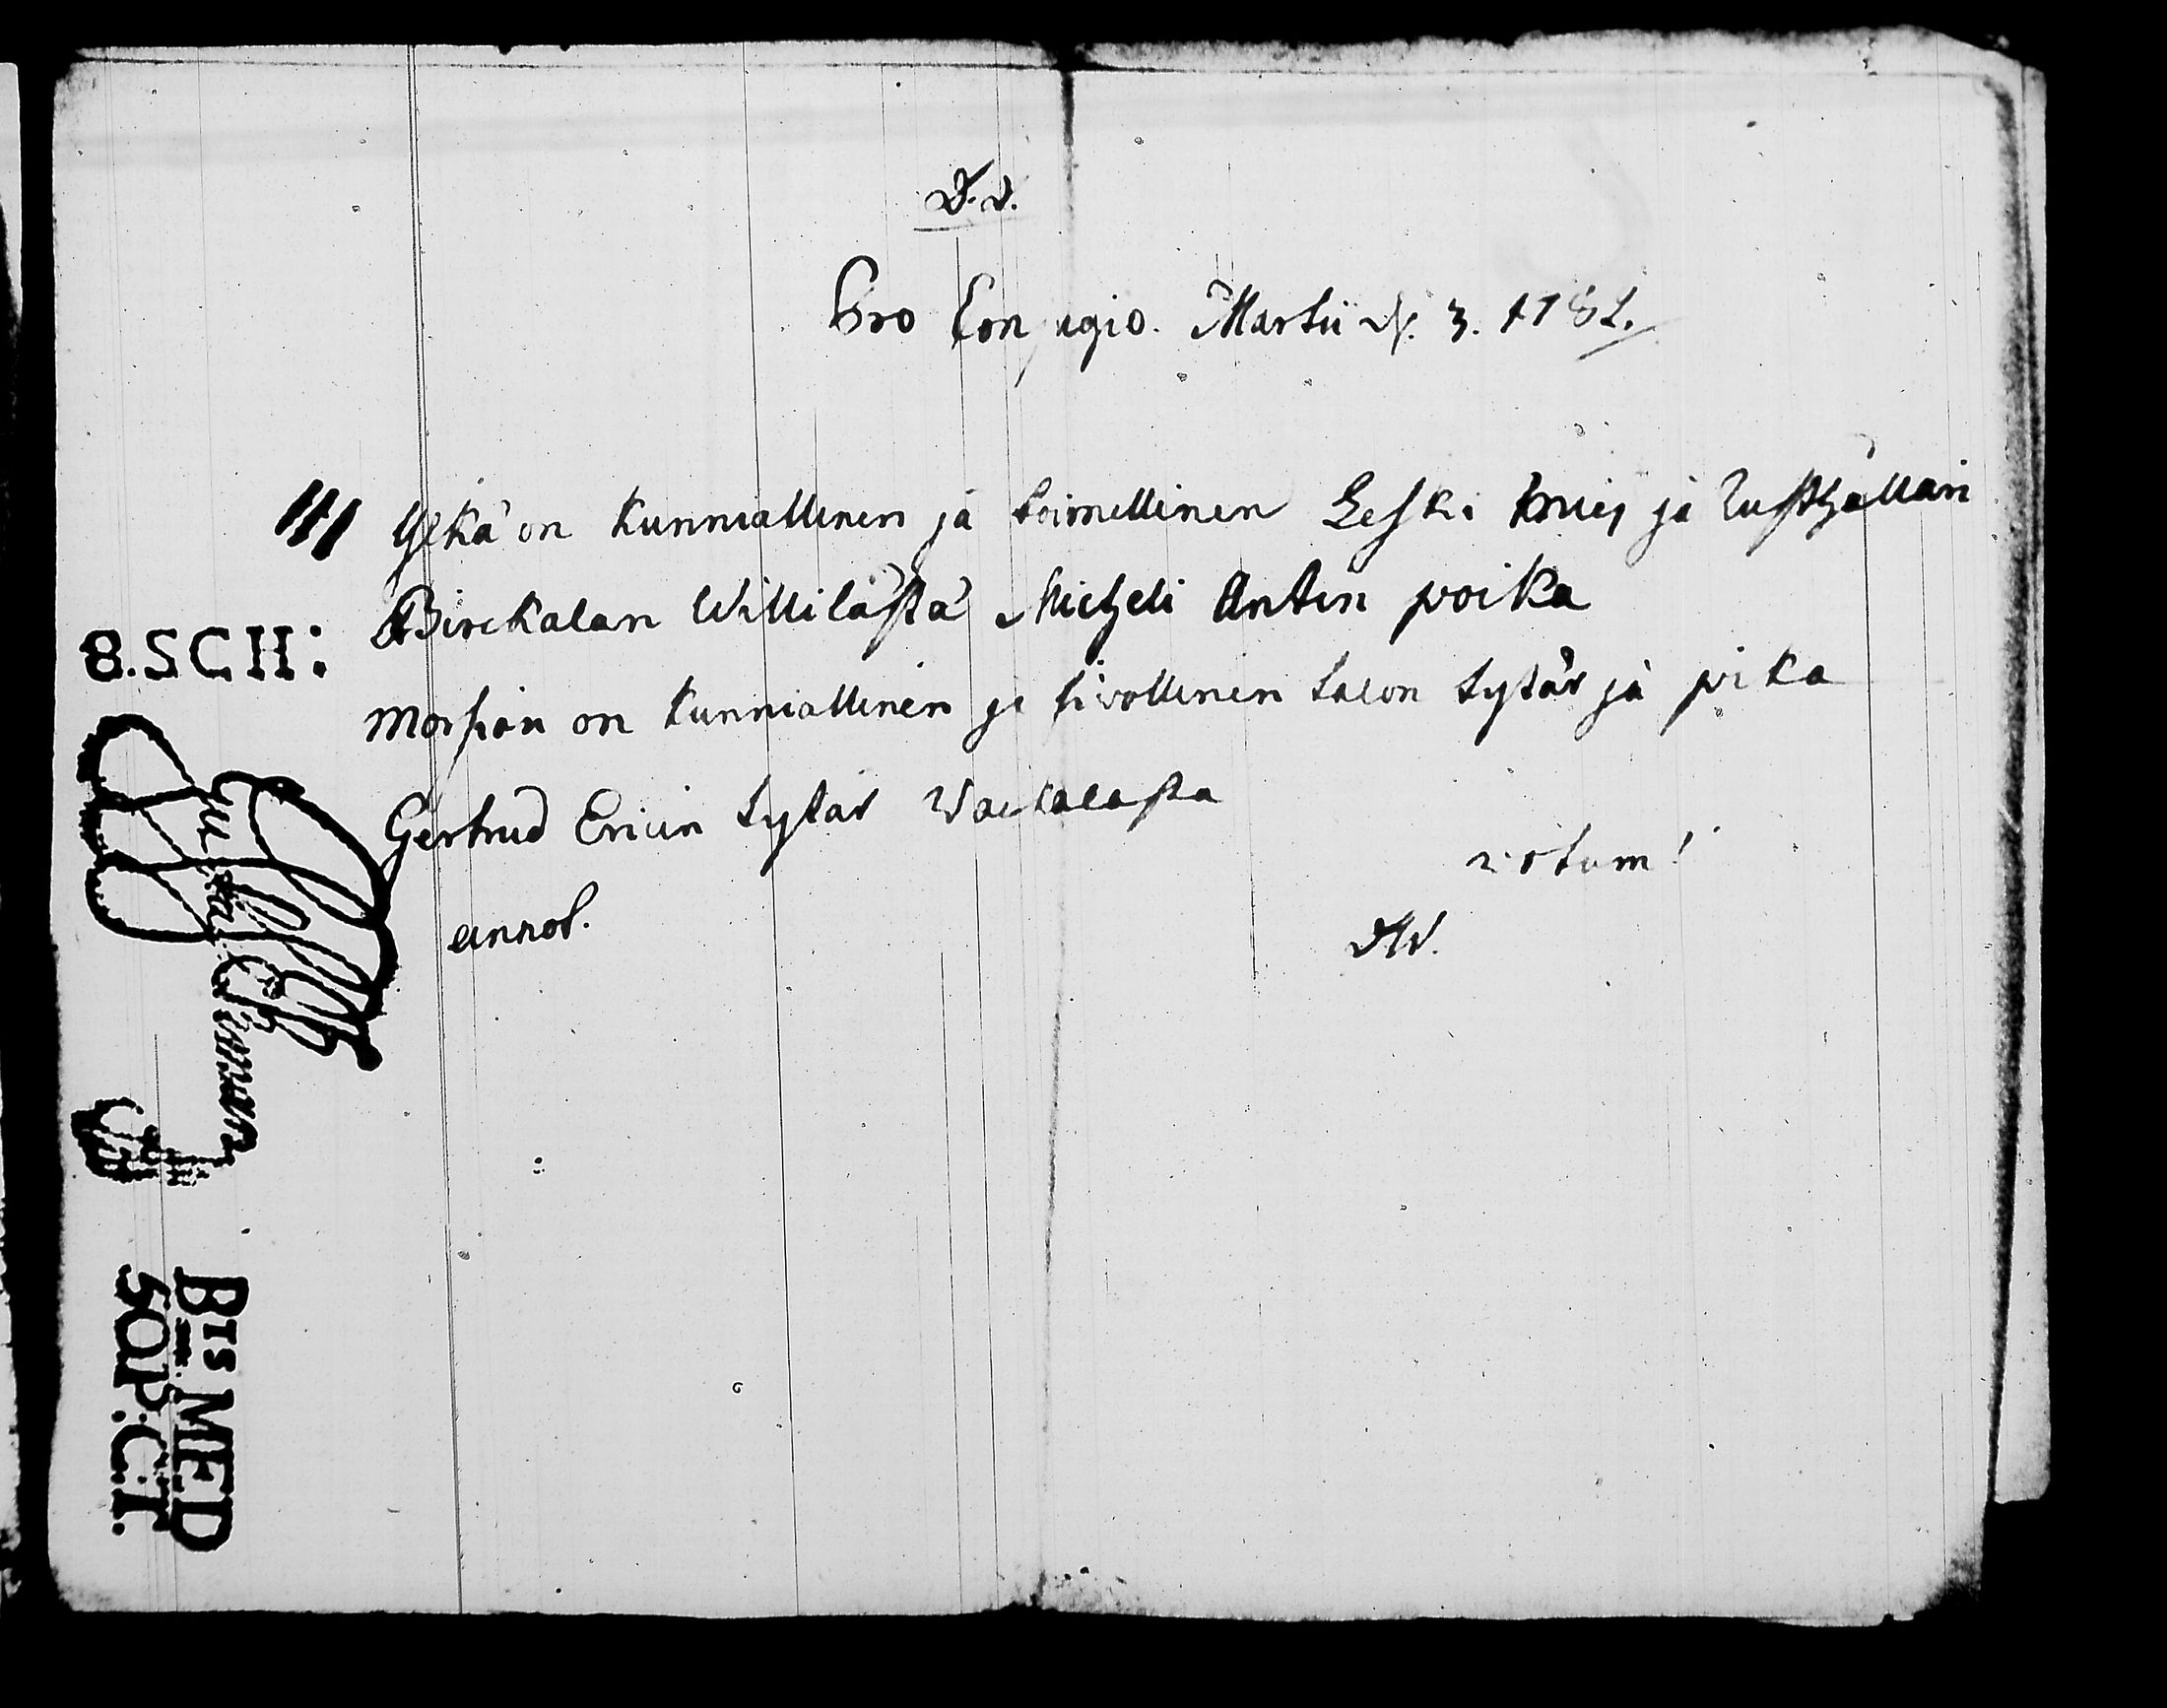 D. D.
Pro Conjugio. Martii d. 3. 1782.
Ylkä on Kunniallinen ja toimellinen Leski mies ja Rusthållari
Birckalan Willilästä Micheli Antin poika
Morsian on Kunniallinen ja sivollinen talon tytär ja pika
Gertrud Ericin tytär
votum!
annot.
8.SCH:
BTS MED
SOP: C:T.